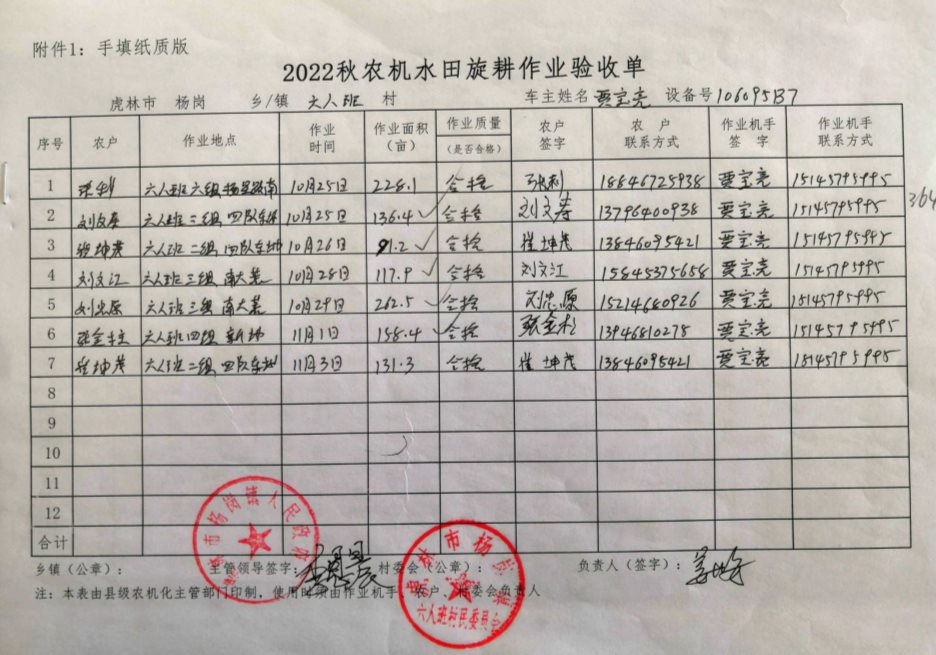 附件1：手填纸质版
2022秋农机水田旋耕作业验收单
虎林市 杨岗 乡/镇 六人班 村 车主姓名 贾宝亮 设备号 106095B7
序号 农户 作业地点 作业时间 作业面积（亩） 作业质量（是否合格） 农户签字 农户联系方式 作业机手签字 作业机手联系方式
1 六人班六组 10月25日 228.1 合格 18846725938 贾宝亮 15145795995
2 刘文寿 六人班三组 10月25日 136.4 合格 刘文寿 13796400938 贾宝亮 15145795995
364
3 崔坤茂 六人班二组 10月26日 91.2 合格 崔坤茂 13846095421 贾宝亮 15145795995
4 刘文江 六人班三组 南大荒 10月28日 117.9 合格 刘文江 15845375658 贾宝亮 15145795995
5 刘忠原 六人班三组 南大荒 10月29日 262.5 合格 刘忠原 15214680926 贾宝亮 15145795995
6 六人班四组 11月1日 158.4 合格 13946810278 贾宝亮 15145795995
7 崔坤茂 六人班二组 11月3日 131.3 合格 崔坤茂 13846095421 贾宝亮 15145795995
8
9
10
11
12
合计
乡镇（公章）： 主管领导签字： 村委会（公章）： 负责人（签字）：
注：本表由县级农机化主管部门印制，使用时须由作业机手、农户、村委会负责人
虎林市杨岗镇人民政府
虎林市杨岗镇
六人班村民委员会